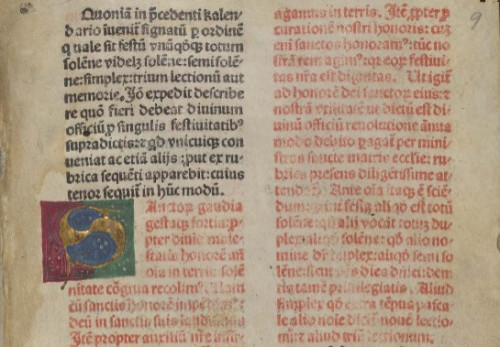 Quoniā in p̄cedenti kalen-
dario iueniſ ſignatū p ordinē
quale ſit feſtū vnūq̄ꝫ totum
ſolēne videlꝫ ſolēne: ſemiſolē
ne: ſimplex: trium lectionū aut
memorie. Jō expedit deſcribe
re quō fieri debeat diuinum
officiū p ſingulis feſtiuitatibꝰ
ſupradictis: qd vnicuiqꝫ con
ueniat ac etiā alijs: put ex ru
brica ſequēti apparebit: cuius
tenor ſequiť in hūc modū.
Anctoꝝ gaudia
geſtaqꝫ fortia: p
pter diuine maie-
ſtatis honorē an
in terris ſolē
nitate cōgrua recolim
cū ſanctis honorē
deū in ſanctis ſuis
Itē propter auxiliū
agamus in terris. Itē ꝓpter p
curationē noſtri honoris: cuꝫ
eni ſanctos honoramꝰ: tūc no
ſtrā rem agimꝰ: qꝛ eoꝝ feſtiui
tas nr̄a eſt dignitas. Ut igiť
ad honorē dei ſanctoꝝ eius: ⁊
noſtrā vtilitatē vt dictū eſt di
uinū officiū reuolutione ānua
modo debito pagať per mini
ſtros ſancte matris eccleſie: ru
brica preſens diligētiſſime at
tendať. Ante oīa itaqꝫ ē ſciē
dum: feſtū aliqd eſt totū
ſolēne: qd alij vocāt totuꝫ du
plex: aliqd ſolēne: qd alio no-
mine dr̄ duplex: aliqd ſemi ſo
lēne: ſicut
priuilegiatis. Aliud
ſimplex qd extra tēpus paſca
le alio noīe dicit nouē lectio-
aliud triū lectionum.